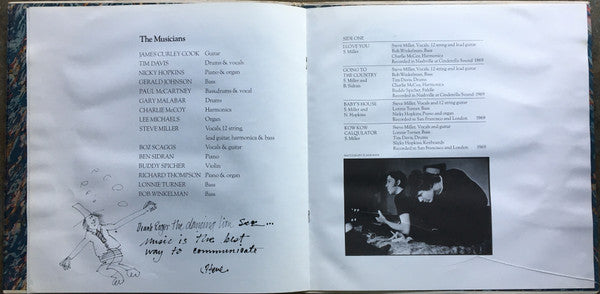 The Musicians
JAMES CURLEY COOK Guitar
TIM DAVIS Drums & vocals
NICKY HOPKINS Piano & organ
GERALD JOHNSON Bass
PAUL McCARTNEY Bass, drums & vocal
GARY MALABAR Drums
CHARLIE McCOY Harmonica
LEE MICHAELS Organ
STEVE MILLER Vocals, 12 string,
lead guitar, harmonica & bass
BOZ SCAGGS Vocals & guitar
BEN SIDRAN Piano
BUDDY SPICHER Violin
RICHARD THOMPSON Piano & organ
LONNIE TURNER Bass
BOB WINKELMAN Bass
the dancing lion
music is the best
way to communicate
Steve
SIDE ONE
I LOVE YOU Steve Miller, Vocals, 12 string and lead guitar
S. Miller Bob Winkelman, Bass
Charlie McCoy, Harmonica
Recorded in Nashville at Cinderella Sound 1969
GOING TO Steve Miller, Vocals, 12 string and lead guitar
THE COUNTRY Bob Winkelman, Bass
S. Miller and Tim Davis, Drums
B. Sidran Charlie McCoy, Harmonica
Buddy Spicher, Fiddle
Recorded in Nashville at Cinderella Sound 1969
BABY'S HOUSE Steve Miller, Vocals, 12 string and guitar
S. Miller and Lonnie Turner, Bass
N. Hopkins Nicky Hopkins, Piano and organ
Recorded in San Francisco and London 1969
KOW KOW Steve Miller, Vocals and guitar
CALQULATOR Lonnie Turner, Bass
S. Miller Tim Davis, Drums
Nicky Hopkins, Keyboards
Recorded in San Francisco and London 1969